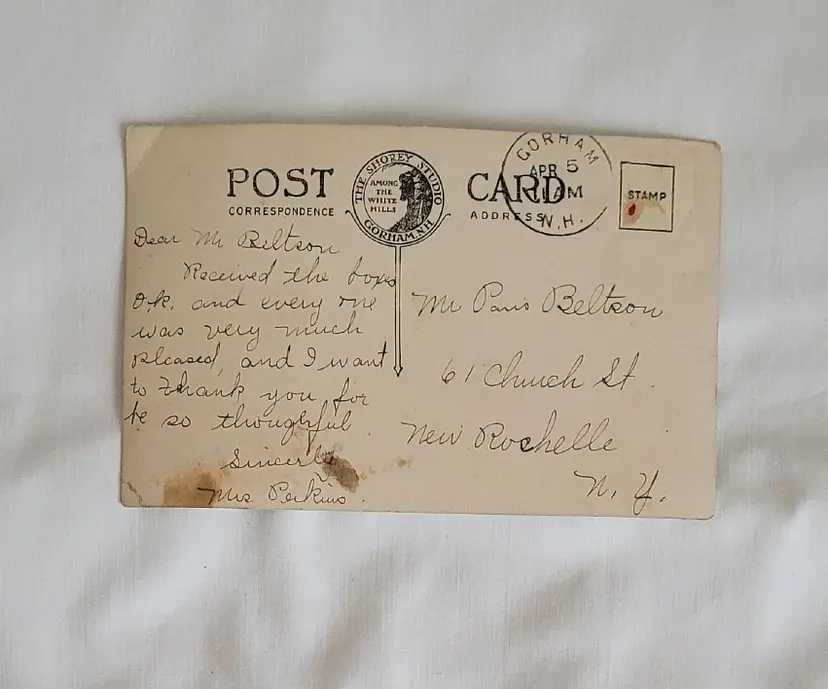 POST CARD
THE SHOREY STUDIO
AMONG
THE
WHITE
HILLS
GORHAM, N.H.
CORRESPONDENCE
ADDRESS
GORHAM
APR 5
AM
N.H.
STAMP
Dear Mr Beltson
Received the boxes
O.k. and every one
was very much
pleased, and I want
to thank you for
be so thoughful.
Sincerly
Mrs Perkins.
Mr Paris Beltson
61 Church St.
New Rochelle
N. Y.